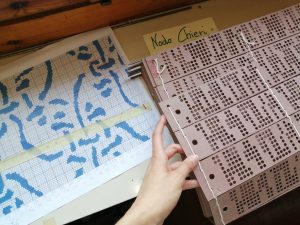 Nodo Chieri